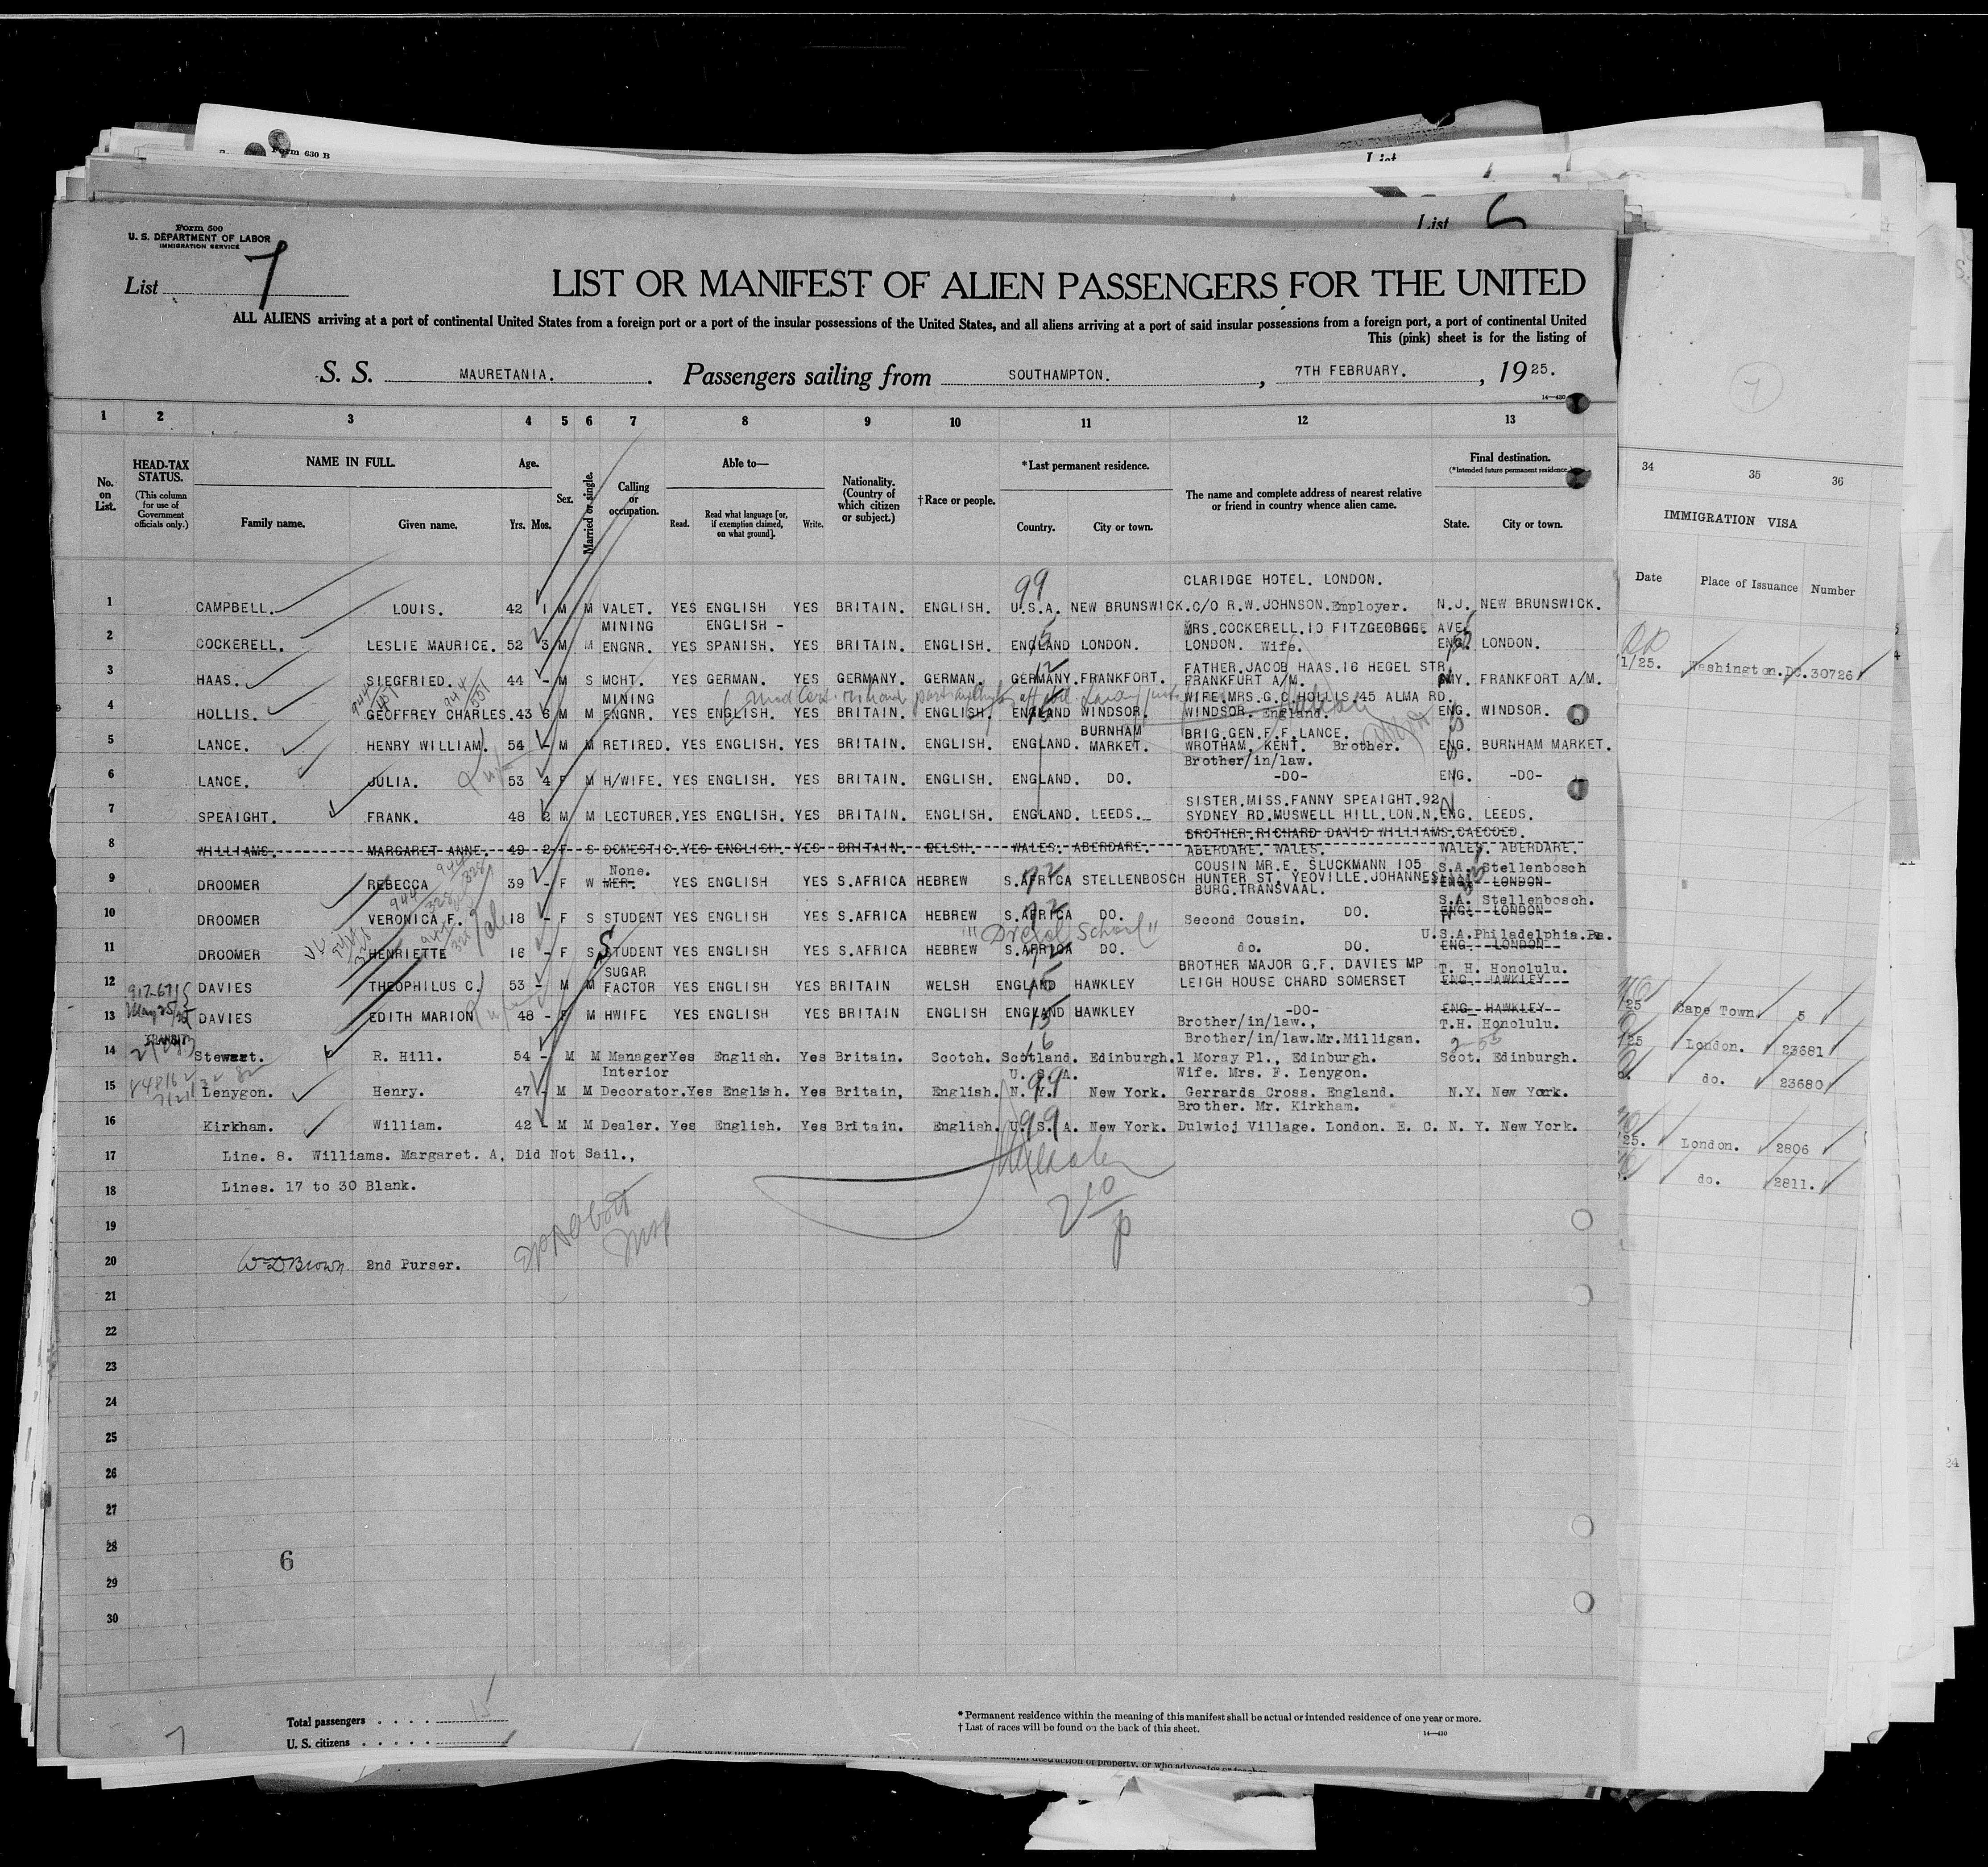 Form 630 B
List
List
Form 500
U. S. DEPARTMENT OF LABOR
IMMIGRATION SERVICE
List 7
LIST OR MANIFEST OF ALIEN PASSENGERS FOR THE UNITED
ALL ALIENS arriving at a port of continental United States from a foreign port or a port of the insular possessions of the United States, and all aliens arriving at a port of said insular possessions from a foreign port, a port of continental United
This (pink) sheet is for the listing of
S. S. MAURETANIA. Passengers sailing from SOUTHAMPTON. , 7TH FEBRUARY. , 1925.
14—430
1 2 3 4 5 6 7 8 9 10 11 12 13
No. on List.
HEAD-TAX STATUS.
(This column for use of Government officials only.)
NAME IN FULL.
Family name. Given name.
Age.
Yrs. Mos.
Sex.
Married or single.
Calling or occupation.
Able to—
Read. Read what language [or, if exemption claimed, on what ground]. Write.
Nationality. (Country of which citizen or subject.)
†Race or people.
*Last permanent residence.
Country. City or town.
The name and complete address of nearest relative or friend in country whence alien came.
Final destination.
(*Intended future permanent residence.)
State. City or town.
34 35 36
IMMIGRATION VISA
Date Place of Issuance Number
99 CLARIDGE HOTEL. LONDON.
1 CAMPBELL. LOUIS. 42 1 M M VALET. YES ENGLISH YES BRITAIN. ENGLISH. U.S.A. NEW BRUNSWICK. C/O R.W.JOHNSON.Employer. N.J. NEW BRUNSWICK.
MINING ENGLISH - MRS.COCKERELL.10 FITZGEORGE AVE.
2 COCKERELL. LESLIE MAURICE. 52 3 M M ENGNR. YES SPANISH. YES BRITAIN. ENGLISH. ENGLAND LONDON. LONDON. Wife. ENG. LONDON.
FATHER.JACOB HAAS.16 HEGEL STR.
3 HAAS. SIEGFRIED. 44 - M S MCHT. YES GERMAN. YES GERMANY. GERMAN. GERMANY.FRANKFORT. FRANKFURT A/M. FRANKFORT A/M.
1/25. Washington.DC. 30726
MINING WIFE.MRS.G.C.HOLLIS.45 ALMA RD.
4 HOLLIS. GEOFFREY CHARLES. 43 6 M M ENGNR. YES ENGLISH. YES BRITAIN. ENGLISH. ENGLAND WINDSOR. WINDSOR. England. ENG. WINDSOR.
BURNHAM BRIG.GEN.F.F.LANCE.
5 LANCE. HENRY WILLIAM. 54 - M M RETIRED. YES ENGLISH. YES BRITAIN. ENGLISH. ENGLAND. MARKET. WROTHAM, KENT. Brother. ENG. BURNHAM MARKET.
Brother/in/law.
6 LANCE. JULIA. 53 4 F M H/WIFE. YES ENGLISH. YES BRITAIN. ENGLISH. ENGLAND. DO. -DO- ENG. -DO-
SISTER.MISS.FANNY SPEAIGHT.92
7 SPEAIGHT. FRANK. 48 2 M M LECTURER. YES ENGLISH. YES BRITAIN. ENGLISH. ENGLAND. LEEDS. SYDNEY RD.MUSWELL HILL.LON.N. ENG. LEEDS.
BROTHER.RICHARD DAVID WILLIAMS.CAECOED.
8 WILLIAMS. MARGARET ANNE. 49 2 F S DOMESTIC. YES ENGLISH. YES BRITAIN. WELSH. WALES. ABERDARE. ABERDARE. WALES. WALES. ABERDARE.
None. COUSIN MR.E. SLUCKMANN 105 S.A. Stellenbosch
9 DROOMER REBECCA 39 - F W MER. YES ENGLISH YES S.AFRICA HEBREW S.AFRICA STELLENBOSCH HUNTER ST. YEOVILLE.JOHANNES ENG. LONDON
BURG.TRANSVAAL.
S.A. Stellenbosch.
10 DROOMER VERONICA F. 18 - F S STUDENT YES ENGLISH YES S.AFRICA HEBREW S.AFRICA DO. Second Cousin. DO. ENG. LONDON
"Drexel School" U.S.A.Philadelphia.Pa.
11 DROOMER HENRIETTE 16 - F S STUDENT YES ENGLISH YES S.AFRICA HEBREW S.AFRICA DO. do. DO. ENG. LONDON
SUGAR BROTHER MAJOR G.F. DAVIES MP T. H. Honolulu.
12 DAVIES THEOPHILUS C. 53 - M M FACTOR YES ENGLISH YES BRITAIN WELSH ENGLAND HAWKLEY LEIGH HOUSE CHARD SOMERSET ENG. HAWKLEY
25 Cape Town. 5
13 DAVIES EDITH MARION 48 - F M HWIFE YES ENGLISH YES BRITAIN ENGLISH ENGLAND HAWKLEY -DO- ENG HAWKLEY
Brother/in/law., T.H. Honolulu.
25 London. 23681
TRANSIT
Brother/in/law.Mr.Milligan.
14 Stewart. R. Hill. 54 - M M Manager Yes English. Yes Britain. Scotch. Scotland. Edinburgh. 1 Moray Pl., Edinburgh. Scot. Edinburgh.
do. 23680
Interior U. S. A. Wife. Mrs. F. Lenygon.
15 Lenygon. Henry. 47 - M M Decorator. Yes English. Yes Britain, English. N. Y. New York. Gerrards Cross. England. N.Y. New York.
Brother. Mr. Kirkham.
16 Kirkham. William. 42 - M M Dealer. Yes English. Yes Britain. English. U. S. A. New York. Dulwicj Village. London. E. C. N. Y. New York.
25. London. 2806
17 Line. 8. Williams. Margaret. A, Did Not Sail.,
do. 2811.
18 Lines. 17 to 30 Blank.
19
20 W D Brown 2nd Purser.
21
22
23
24
25
26
27
28
29
30
6
Total passengers . . . . 15
U. S. citizens . . . . .
7
* Permanent residence within the meaning of this manifest shall be actual or intended residence of one year or more.
† List of races will be found on the back of this sheet.
14—430